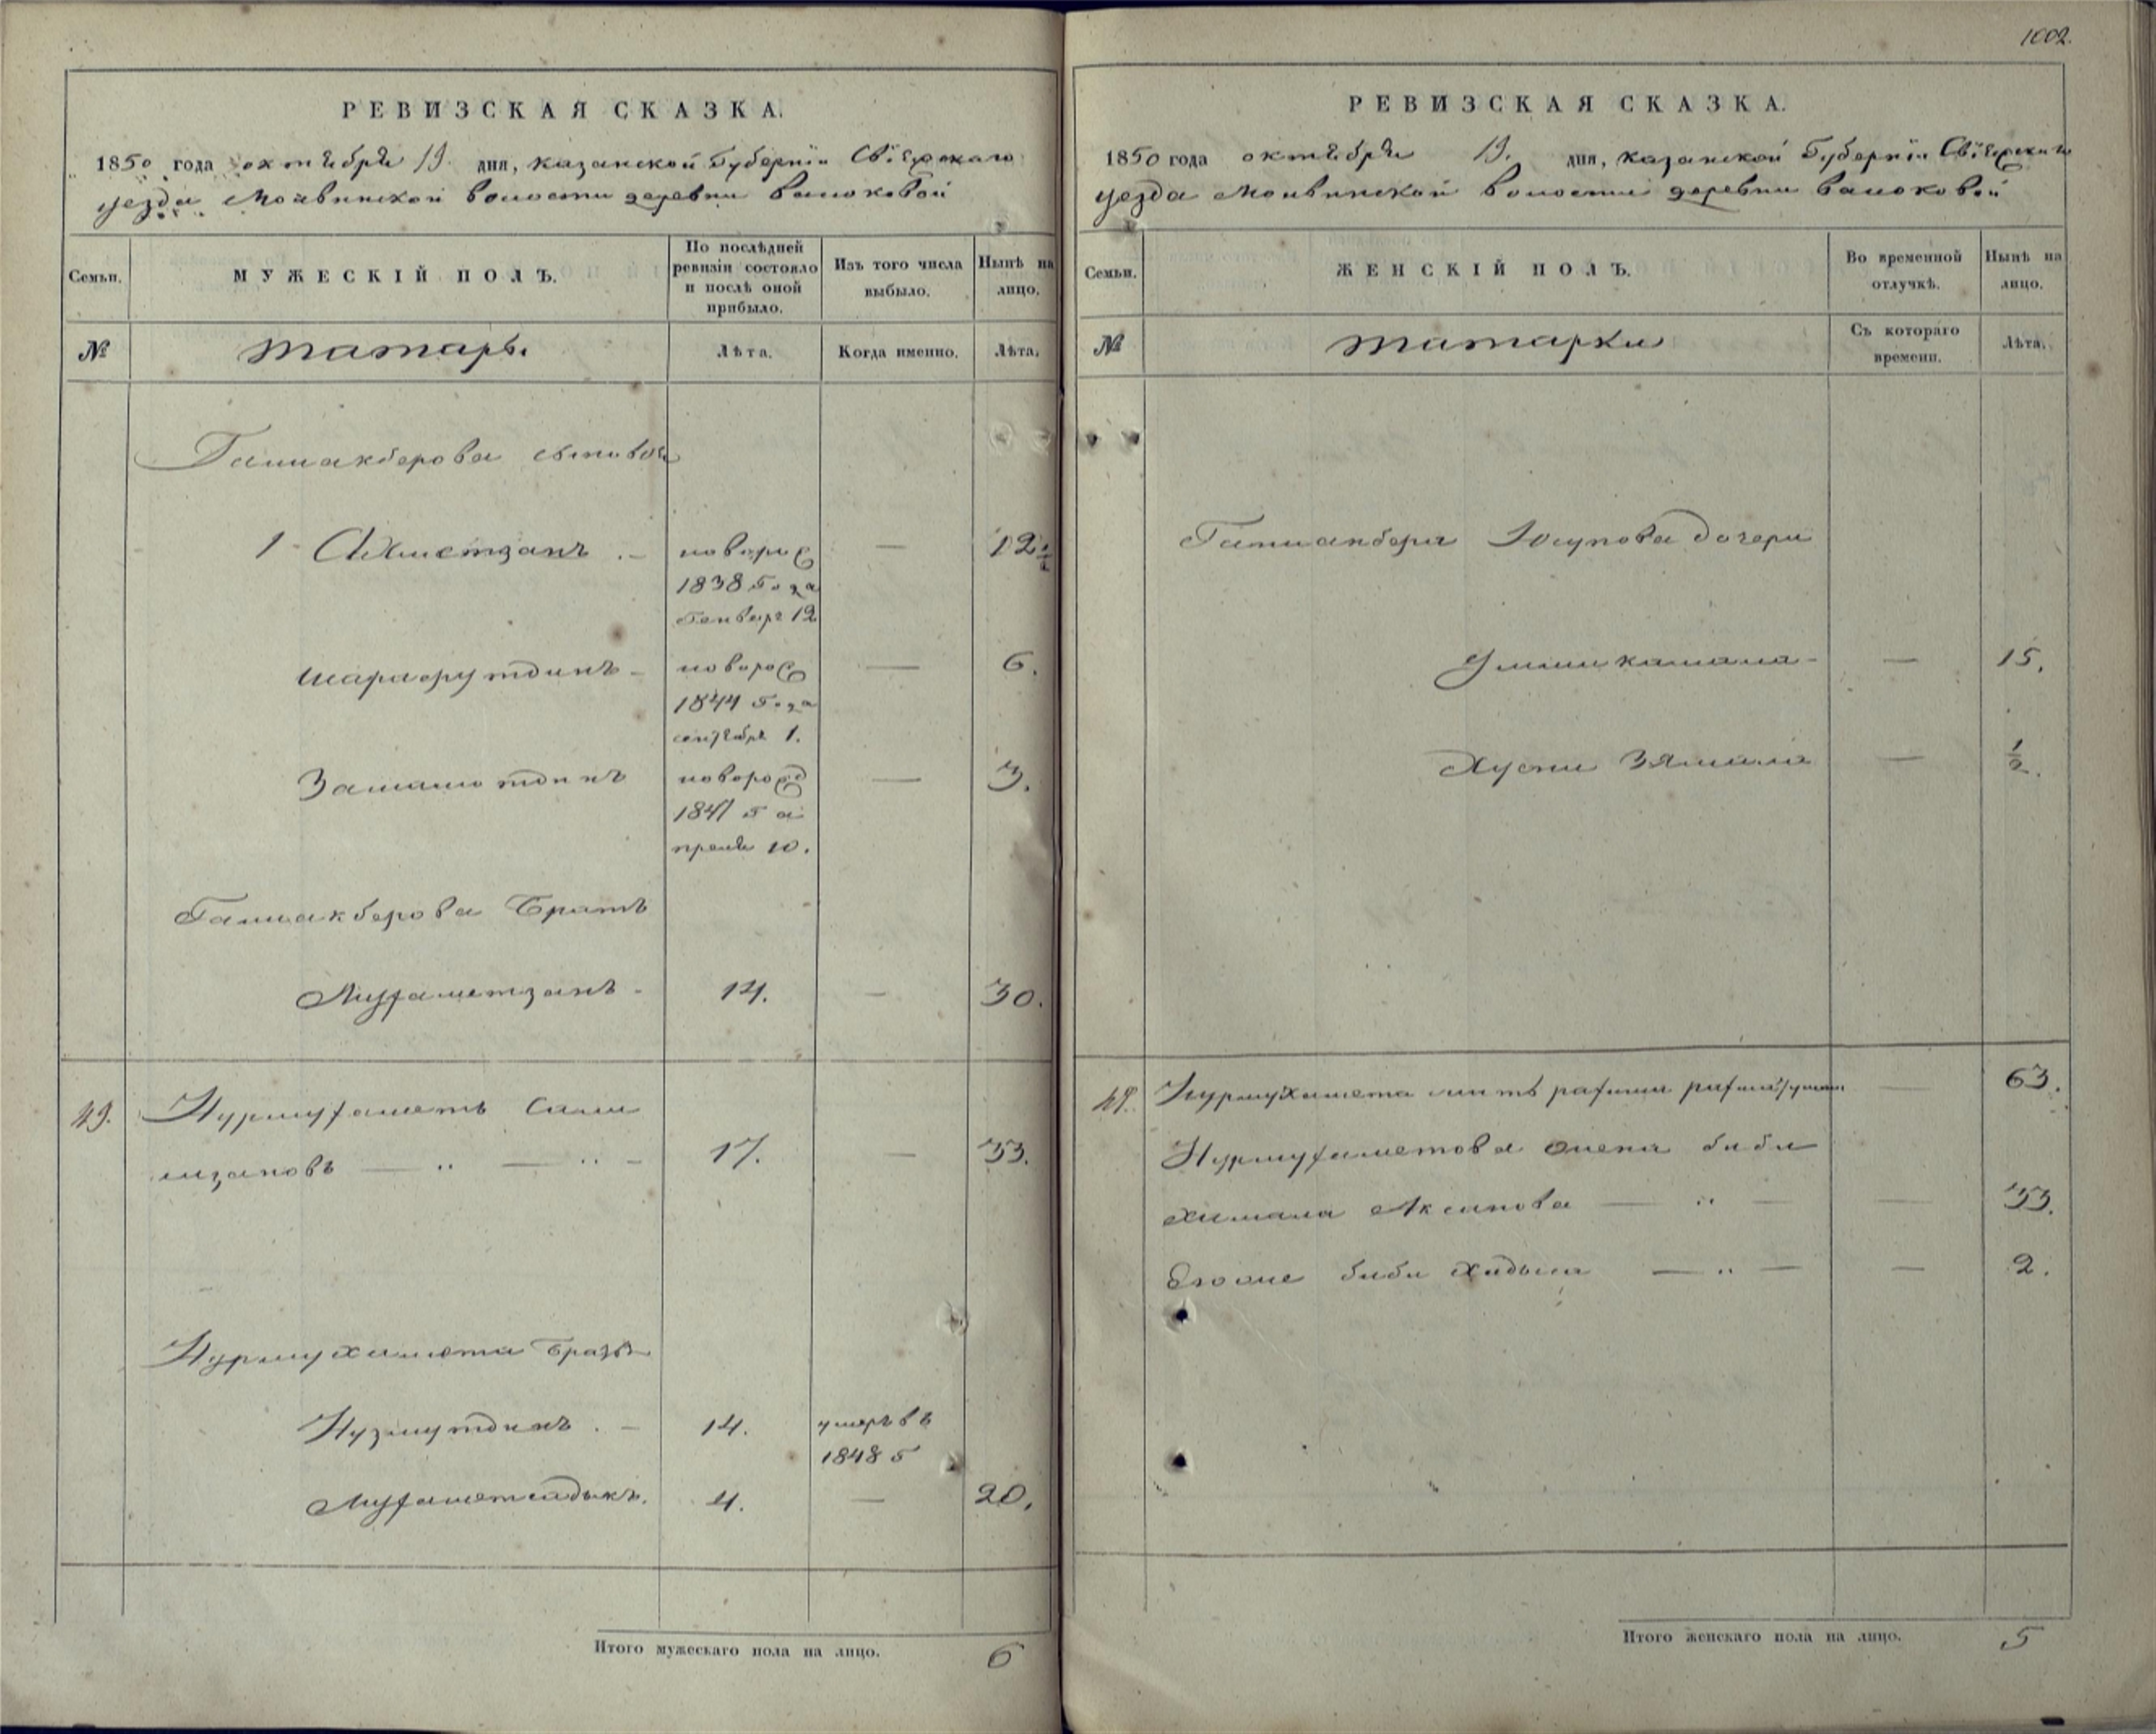 1002.
РЕВИЗСКАЯ СКАЗКА.
1850 года октября 19. дня, казанской Губерніи Свіяжскаго
уезда Моквинской волости деревни
Семьи.
МУЖЕСКІЙ ПОЛЪ.
По послѣдней ревизіи состояло и послѣ оной прибыло.
Изъ того числа выбыло.
Нынѣ на лицо.
№
татары
Лѣта.
Когда именно.
Лѣта.
Галиакберова сыновья
1 Ахметзянъ новорож 1838 Года Генваря 12 — 12 ½
шарафутдинъ новорож 1844 Года сентября 1. — 6.
Замалютдинъ новорожд — 3.
Галиакберова Братъ
Мухаметзянъ 14. — 30.
49. Нурмухаметъ Сали
17. — 33.
Нурмухамета Братья
Нузмутдинъ 14. умеръ въ 1848 г
Мухаметсадыкъ 4. — 20.
Итого мужескаго пола на лицо. 6
РЕВИЗСКАЯ СКАЗКА.
1850 года октября 19. дня, казанской Губерніи Свіяжскаго
уезда Моквинской волости деревни
Семьи.
ЖЕНСКІЙ ПОЛЪ.
Во временной отлучкѣ.
Нынѣ на лицо.
№
татарки
Съ котораго времени.
Лѣта.
Галиакбера Юсупова дочери
Уммикамала — 15.
Хусни Зямала — ½.
49. Нурмухамета мать — 63.
Нурмухаметова жена биби
Аксанова — 33.
Егоже биби Хадыча — 2.
Итого женскаго пола на лицо. 5